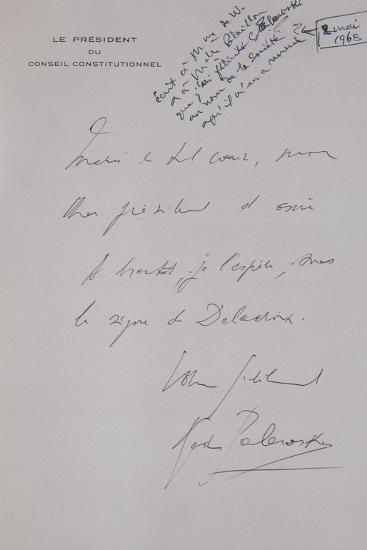 LE PRÉSIDENT
DU
CONSEIL CONSTITUTIONNEL
2 mai
1968
Écrit à Mme de W.
et à Melle
que j'ai félicité G. Palewski
au nom de la Société
qu'il en a remercié
Merci de tout cœur, mon
cher président et ami
A bientôt, je l'espère, sous
le signe de Delacroix.
Votre
Gaston Palewski